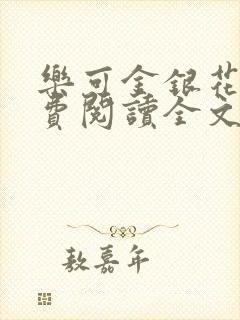 樂可金銀花
費閱讀全文
敖嘉年